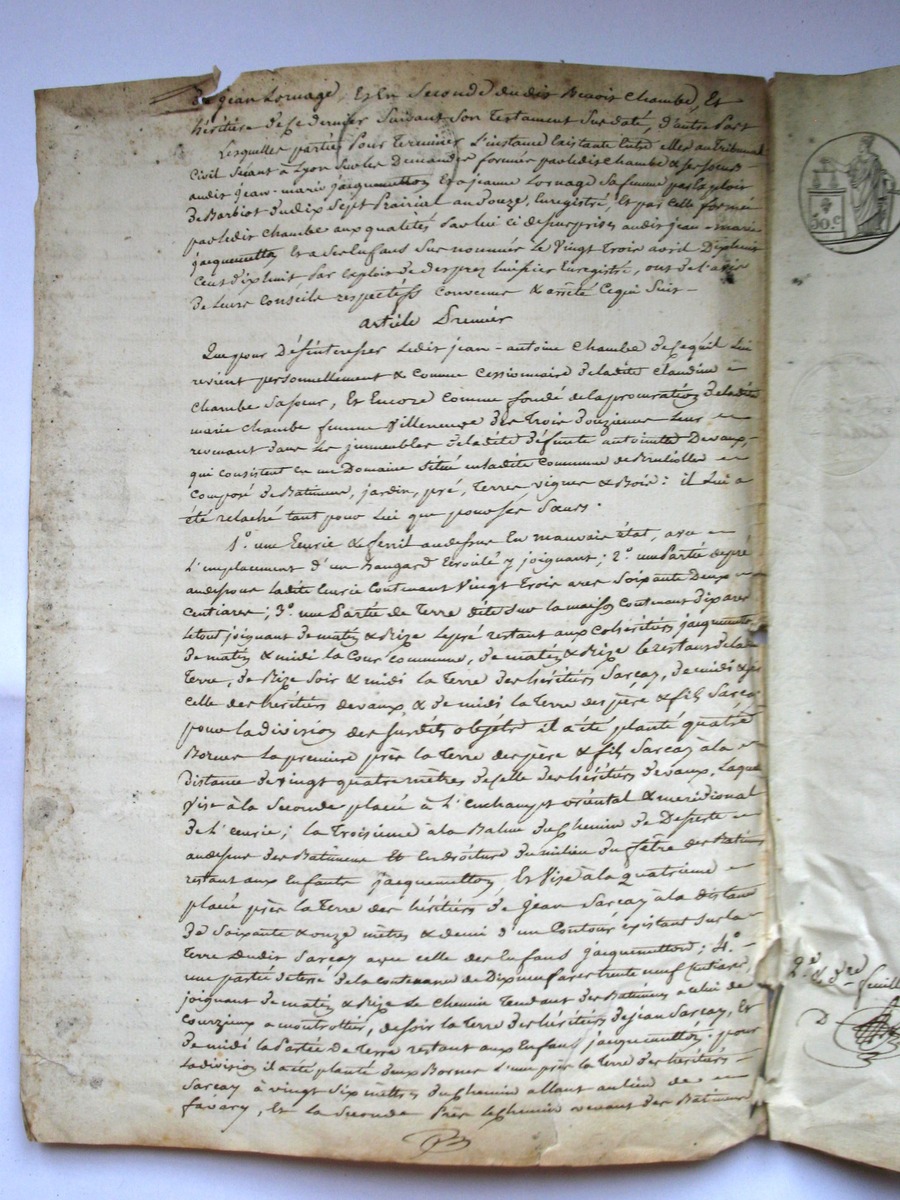 de jean Lornage, Et En Seconde dudit Benoit Chambe, Et
héritière de Ce dernier Suivant Son Testament Susdaté, d'autre Part
Lesquelles parties Pour Terminer L'instance Existante Entre elles au Tribunal
Civil Séant à Lyon Sur les Demandes formées par ledit Chambe & ses soeurs
audit jean-marie jacquemetton Et a jeanne Lornage Sa femme par Exploit
De Barbiot du dix Sept Prairial an Douze, Enregistré, Et par Celle formée
par ledit Chambe aux qualités Par lui ci dessus prises audit jean-marie
jacquemetton Et a ses Enfans Sus nommés le Vingt Trois avril Dix huit
Cent dix huit, Par Exploit de desprez huissier Enregistré, ont de l'avis
De Leurs Conseils respectifs Convenu & arrêté Ce qui Suit -
article Premier
Que pour Désintéresser Ledit jean-antoine Chambe de Ce qu'il Lui
revient personnellement & Comme Cessionnaire de ladite Claudine
Chambe Sa soeur, Et Encore Comme fondé de la procuration de ladite
marie Chambe femme Villeneuve des Trois Douzièmes Leur
revenant dans Les immeubles de ladite défunte antoinette Devaux,
qui Consistent en un Domaine Situé en ladite Commune de Brullioles
Composé de Batimens, jardin, pré, Terres vignes & Bois: il Lui a
été relaché tant pour Lui que pour ses Sœurs.
1.º une Ecurie & fenil au dessus En mauvais état, avec
L'emplacement d'un hangard Ecroulé y joignant; 2.º une Partie de pré
au dessous ladite Ecurie Contenant Vingt Trois ares Soixante Deux
Centiares; 3.º une Partie de Terre dite Sur la maison Contenant dix ares
Le tout joignant de matin & Bize Le pré restant aux Cohéritiers jacquemetton
De matin & midi La Cour Commune, De matin & Bize le restant de la
Terre, de Bize Soir & midi la Terre des héritiers Sarcay, De midi &
Celle des héritiers devaux, & de midi la Terre des père & fils Sarcay
pour la division des Susdits objets il a été planté quatre
Bornes La première près la Terre des père & fils Sarcay à la
distance de Vingt quatre mètres de Celle des héritiers devaux, Laquelle
Vise à la Seconde placée à L' oriental & méridional
de L'écurie; la Troisième à la Balme du Chemin de Desserte
au dessus des Batimens Et En droiture du milieu du fêtre des Batimens
restant aux Enfants jacquemetton, Et Vise à la quatrième
placée près la Terre des héritiers de jean Sarcay à la distance
De Soixante & onze mètres & demi d'un Contour Existant Sur la
Terre dudit Sarcay avec celle des Enfans jacquemetton; 4.º
une partie de terre de la Contenance de Dix neuf ares trente neuf Centiares,
joignant de matin & Bize Le Chemin Tendant des Batimens a celui de
Courzieux a montrottier, de soir la Terre des héritiers de jean Sarcay, Et
De midi la Partie de Terre restant aux Enfans jacquemetton: pour
La division il a été planté deux Bornes L'une près la Terre des héritiers
Sarcay à vingt Six mètres du Chemin allant au lieu de
favary, Et La Seconde Près le Chemin venant des Batimens
50.c
2.e & d.re feuille